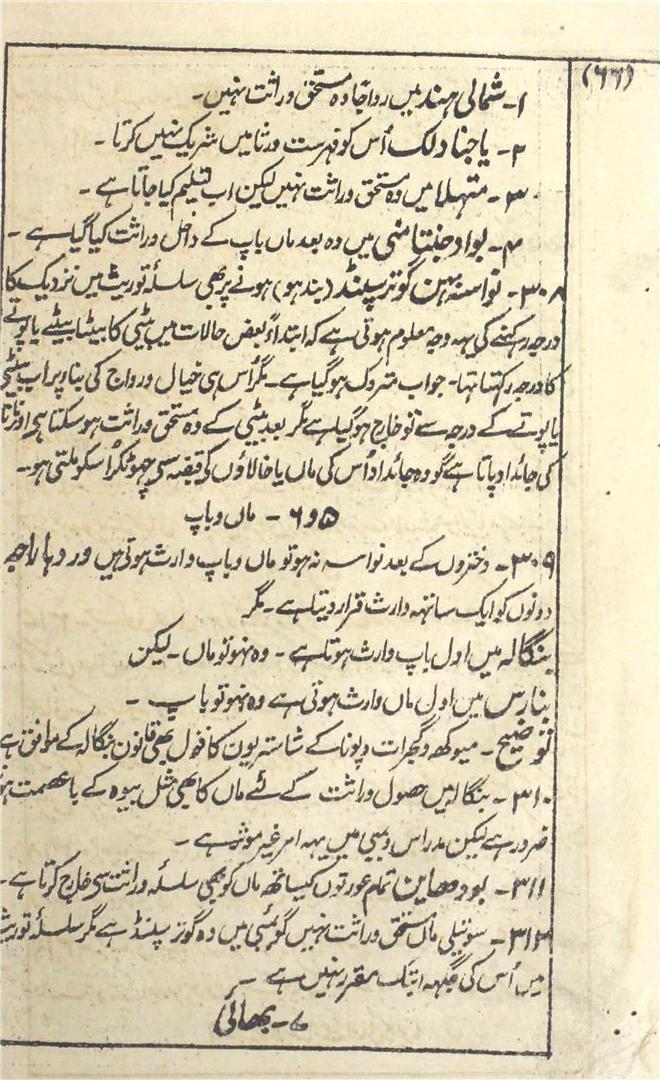 (۶۶)
۱- شمالی ہند میں رواجًا وہ مستحق وراثت نہیں۔
۲- یاجنا دلک اُس کو فہرست ورثا میں شریک نہیں کرتا۔
۳- متہلا میں وہ مستحق وراثت نہیں لیکن اب تسلیم کیا جاتا ہے۔
۴- بواد چنتامنی میں وہ بعد ماں باپ کے داخل وراثت کیا گیا ہے۔
۳۰۸- نواسہ بہن گوتر سپنڈ (بندہو) ہونے پر بھی سلسلۂ توریث میں نزدیک کا
درجہ رکہنے کی یہہ وجہ معلوم ہوتی ہے کہ ابتداءً بعض حالات میں بیٹی کا بیٹا بیٹے یا پوتے
کا درجہ رکہتا تہا۔ جو اب متروک ہو گیا ہے۔ مگر اُس ہی خیال و رواج کی بنا پر اب بیٹے
یا پوتے کے درجہ سے تو خارج ہو گیا ہے مگر بعد بیٹی کے وہ مستحق وراثت ہو سکتا ہے اور نانا
کی جائداد پاتا ہے گو وہ جائداد اُس کی ماں یا خالاؤں کی قبضہ سی چھوٹکر اُسکو ملتی ہو۔
۵ و ۶ - ماں و باپ
۳۰۹- دختروں کے بعد نواسہ نہ ہو تو ماں و باپ وارث ہوتی ہیں ور دہاراجہ
دونوں کو ایک ساتہہ وارث قرار دیتا ہے۔ مگر
بنگالہ میں اول باپ وارث ہوتا ہے۔ وہ نہو تو ماں۔ لیکن
بنارس میں اول ماں وارث ہوتی ہے وہ نہو تو باپ۔
توضیح۔ میوکھ و گجرات و پونا کے شاستریوں کا قول بھی قانون بنگالہ کے موافق ہے
۳۱۰- بنگالہ میں حصول وراثت کے لئے ماں کا بھی مثل بیوہ کے با عصمت ہونا
ضرور ہے لیکن مدراس و بمبئی میں یہہ امر غیر موثر ہے۔
۳۱۱- بودھاین تمام عورتوں کیساتھ ماں کو بھی سلسلۂ وراثت سی خارج کرتا ہے۔
۳۱۲- سوتیلی ماں مستحق وراثت نہیں گو بمبئی میں وہ گوتر سپنڈ ہے مگر سلسلۂ توریث
میں اُس کی جگہہ ابتک مقرر نہیں ہے۔
۷- بھائی